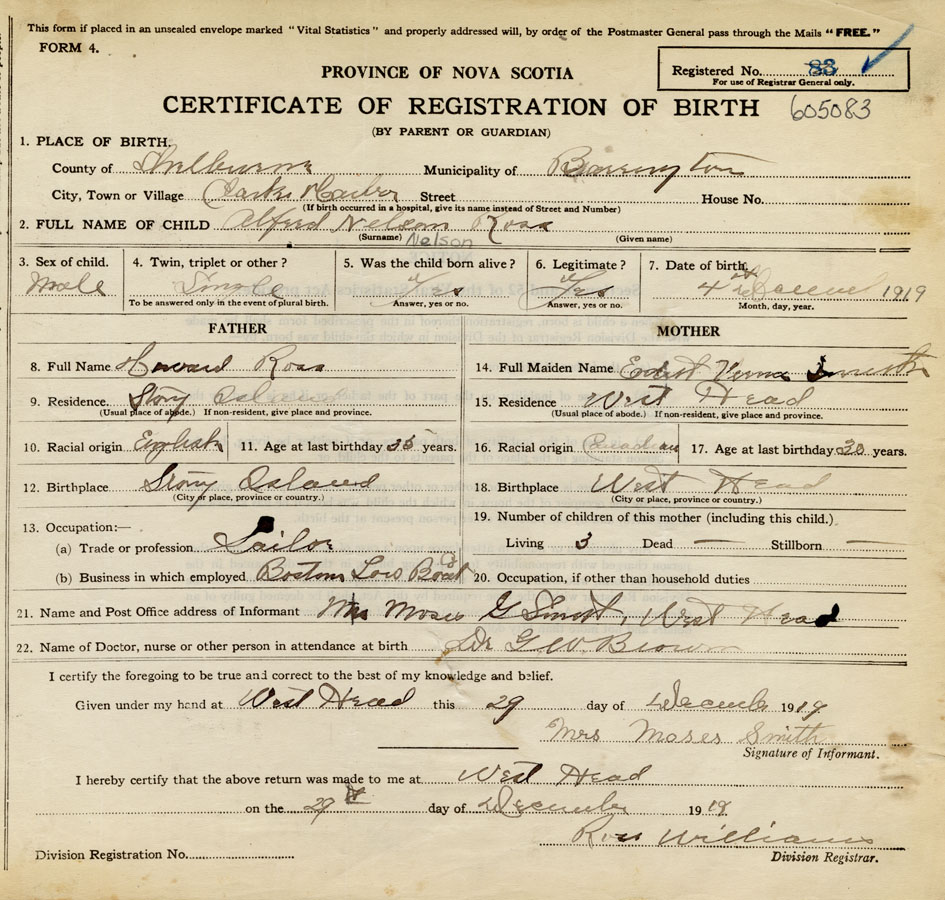 This form if placed in an unsealed envelope marked "Vital Statistics" and properly addressed will, by order of the Postmaster General pass through the Mails "FREE."
FORM 4.
Registered No. 83
For use of Registrar General only.
PROVINCE OF NOVA SCOTIA
CERTIFICATE OF REGISTRATION OF BIRTH 605083
(BY PARENT OR GUARDIAN)
1. PLACE OF BIRTH.
County of Shelburne Municipality of Barrington
City, Town or Village Clarks Harbor Street House No.
(If birth occurred in a hospital, give its name instead of Street and Number)
2. FULL NAME OF CHILD Alfred Nelson Ross
(Surname) Nelson (Given name)
3. Sex of child. 4. Twin, triplet or other? 5. Was the child born alive? 6. Legitimate? 7. Date of birth.
Male Single Yes Yes 4th December 1919
To be answered only in the event of plural birth. Answer, yes or no. Answer, yes or no. Month, day, year.
FATHER MOTHER
8. Full Name Howard Ross 14. Full Maiden Name Verna
9. Residence. Stony Island 15. Residence West Head
(Usual place of abode.) If non-resident, give place and province. (Usual place of abode.) If non-resident, give place and province.
10. Racial origin English 11. Age at last birthday years. 16. Racial origin 17. Age at last birthday years.
12. Birthplace Stony Island 18. Birthplace West Head
(City or place, province or country.) (City or place, province or country.)
13. Occupation:— 19. Number of children of this mother (including this child.)
(a) Trade or profession Sailor Living 3 Dead — Stillborn —
(b) Business in which employed Boston Boat 20. Occupation, if other than household duties
21. Name and Post Office address of Informant Mrs Moses G , West Head
22. Name of Doctor, nurse or other person in attendance at birth Dr G W. Brown
I certify the foregoing to be true and correct to the best of my knowledge and belief.
Given under my hand at West Head this 29 day of December 1919
Mrs Moses Smith
Signature of Informant.
I hereby certify that the above return was made to me at West Head
on the 29th day of December 1919
Williams
Division Registrar.
Division Registration No.